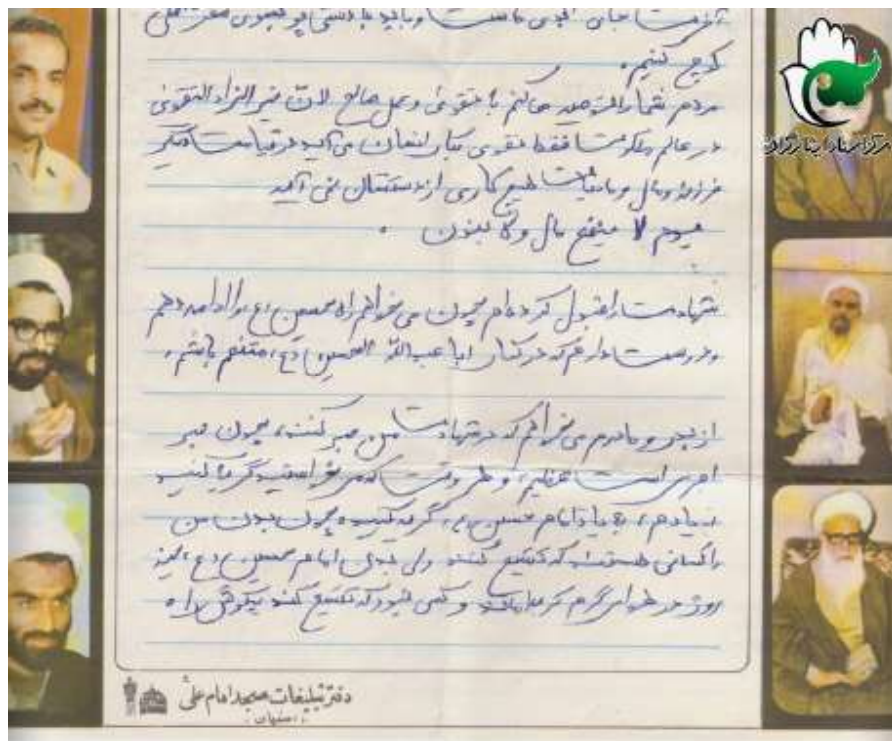 آخرت جای ابدی ماست و باید با دستی پر بسوی
کوچ کنیم.
مردم شما را توصیه میکنم به تقوی و عمل صالح لان خیر الزاد التقوی
در عالم ملکوت فقط تقوی بکار انسان می آید در قیامت دیگر
فرزند و مال و هیچ کاری از دستشان نمی آید
یوم لا ینفع مال و لا بنون .
شهادت را قبول کرده ام چون می خواهم راه حسین (ع) را ادامه دهم
و دوست دارم که در کنار ابا عبدالله الحسین (ع) متنعم باشم.
از پدر و مادرم می خواهم که در شهادت من صبر کنند، چون صبر
امری است عظیم، و هر وقت که می خواستید گریه کنید
به یاد امام حسین (ع) گریه کنید، چون بدن من
را کسانی هستند که تشییع کنند ولی بدن امام حسین (ع) چند
روز در هوای گرم کربلا ماند و کسی نبود که تشییع کند
دفتر تبلیغات مسجد امام علی
اصفهان
مرکز اسناد ایثارگران